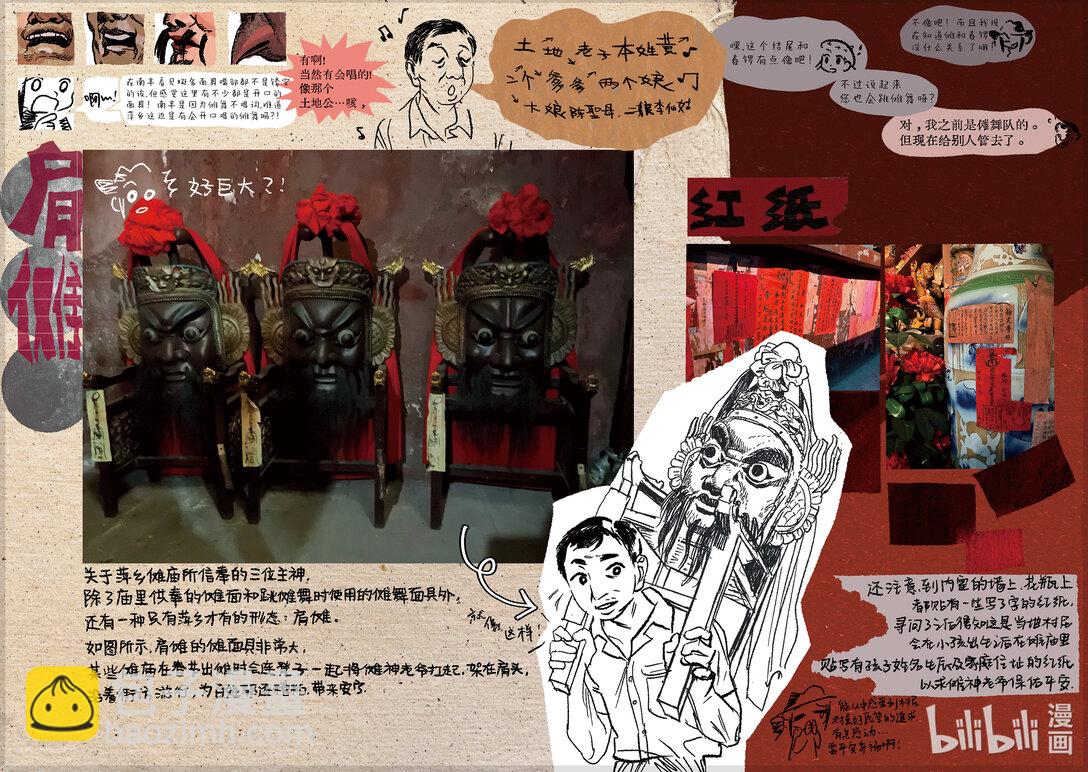 在南丰看见很多面具嘴部都不是镂空
的诶,但感觉这里有不少都是开口的
面具!南丰是因为傩舞不唱词,难道
萍乡这边是有会开口唱的傩舞吗?!
啊…!
有啊!
当然有会唱的!
像那个
土地公…咳,
土地老子本姓黄
一个爹爹两个娘
大娘陈圣母,二娘李仙姑
嘿,这个结尾和
春锣有点像吧!
不像吧!而且我现
在知道傩和春锣
没什么关系了哦!
不过说起来
您也会跳傩舞吗?
对,我之前是傩舞队的。
但现在给别人管去了。
肩傩
好巨大?!
红纸
关于萍乡傩庙所信奉的三位主神,
除了庙里供奉的傩面和跳傩舞时使用的傩舞面具外,
还有一种只有萍乡才有的形态:肩傩。
如图所示,肩傩的傩面具非常大,
某些傩庙在春节出傩时会连凳子一起,将傩神老爷扛起,架在肩头,
带来安宁
就像
这样!
还注意到内室的墙上、花瓶上
都贴有一些写了字的红纸,
寻问了之后得知这是当地村民
会在小孩出生后在傩庙里
贴写有孩子姓名生辰及家庭住址的红纸
以求傩神老爷保佑平安.
有点感动…
bilibili
漫画